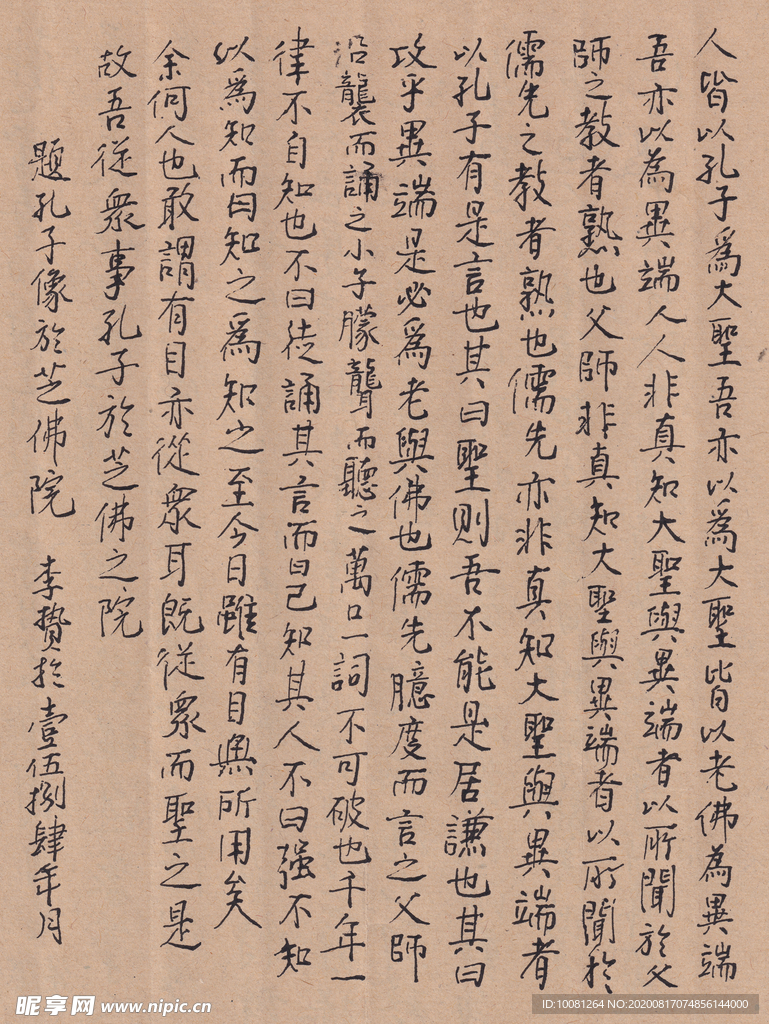 人皆以孔子爲大聖吾亦以爲大聖皆以老佛為異端
吾亦以為異端人人非真知大聖與異端者以所聞於父
師之教者熟也父師非真知大聖與異端者以所聞於
儒先之教者熟也儒先亦非真知大聖與異端者
以孔子有是言也其曰聖則吾不能是居謙也其曰
攻乎異端是必爲老與佛也儒先臆度而言之父師
沿襲而誦之小子朦聾而聽之萬口一詞不可破也千年一
律不自知也不曰徒誦其言而曰已知其人不曰强不知
以爲知而曰知之爲知之至今日雖有目無所用矣
余何人也敢謂有目亦從衆耳既從衆而聖之是
故吾從衆事孔子於芝佛之院
題孔子像於芝佛院 李贄於壹伍捌肆年月
昵享网 www.nipic.cn
ID:10081264 NO:20200817074856144000